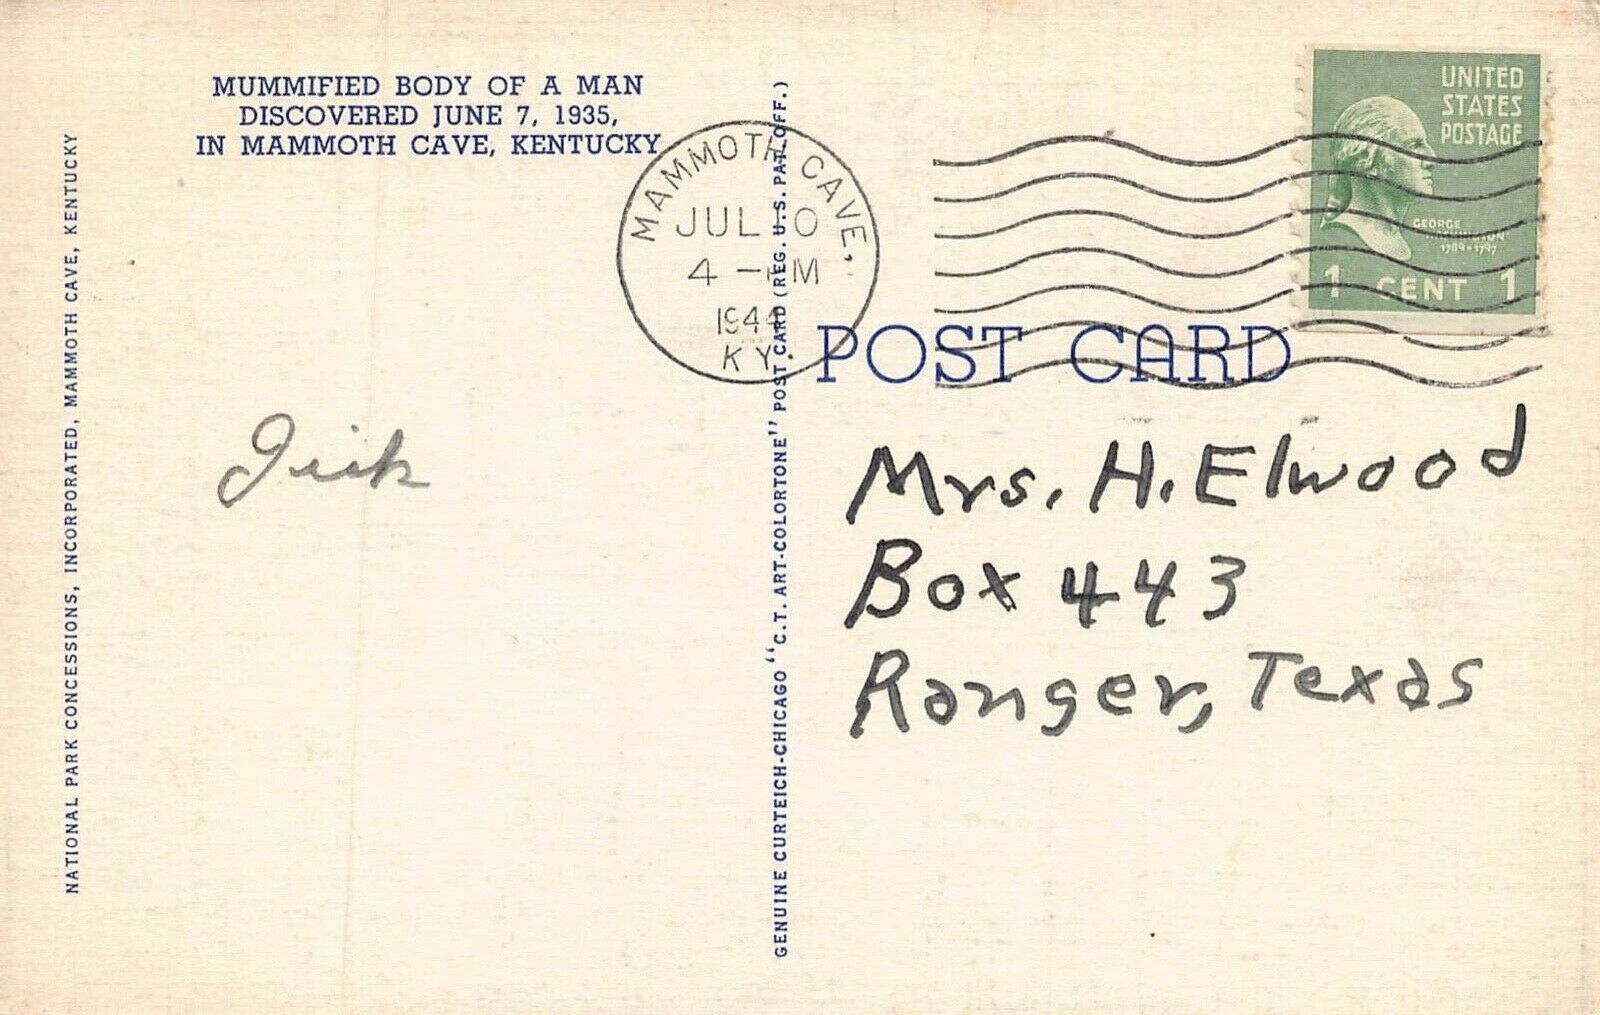 MUMMIFIED BODY OF A MAN
DISCOVERED JUNE 7, 1935,
IN MAMMOTH CAVE, KENTUCKY
NATIONAL PARK CONCESSIONS, INCORPORATED, MAMMOTH CAVE, KENTUCKY
GENUINE CURTEICH-CHICAGO "C.T. ART-COLORTONE" POST CARD (REG. U.S. PAT. OFF.)
MAMMOTH CAVE,
JUL
4
1944
KY.
UNITED
STATES
POSTAGE
GEORGE
WASHINGTON
1789-1797
1 CENT 1
POST CARD
Mrs. H. Elwood
Box 443
Ranger, Texas